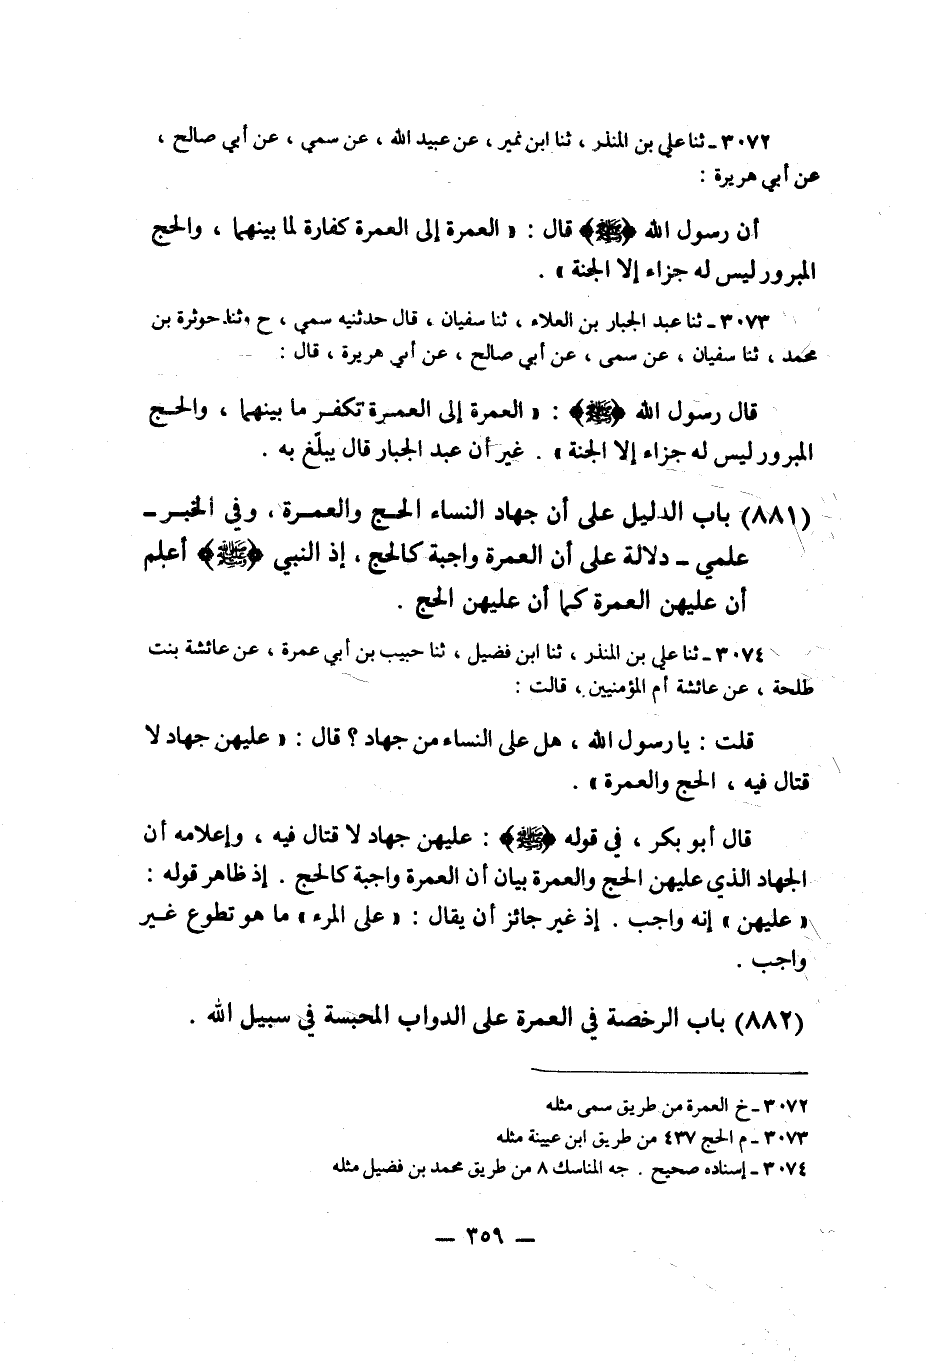 ٣٠٧٢ ـ ثنا علي بن المنذر ، ثنا ابن نمير ، عن عبيد الله ، عن سمي ، عن أبي صالح ،
عن أبي هريرة :
أن رسول الله ﴿ﷺ﴾ قال : « العمرة إلى العمرة كفارة لما بينهما ، والحج
المبرور ليس له جزاء إلا الجنة » .
٣٠٧٣ ـ ثنا عبد الجبار بن العلاء ، ثنا سفيان ، قال حدثنيه سمي ، ح وثنا حوثرة بن
محمد ، ثنا سفيان ، عن سمى ، عن أبي صالح ، عن أبي هريرة ، قال :
قال رسول الله ﴿ﷺ﴾ : « العمرة إلى العمرة تكفر ما بينهما ، والحج
المبرور ليس له جزاء إلا الجنة » . غير أن عبد الجبار قال يبلّغ به .
(٨٨١) باب الدليل على أن جهاد النساء الحج والعمرة ، وفي الخبر ـ
علمي ـ دلالة على أن العمرة واجبة كالحج ، إذ النبي ﴿ﷺ﴾ أعلم
أن عليهن العمرة كما أن عليهن الحج .
٣٠٧٤ ـ ثنا علي بن المنذر ، ثنا ابن فضيل ، ثنا حبيب بن أبي عمرة ، عن عائشة بنت
طلحة ، عن عائشة أم المؤمنيين ، قالت :
قلت : يا رسول الله ، هل على النساء من جهاد ؟ قال : « عليهن جهاد لا
قتال فيه ، الحج والعمرة » .
قال أبو بكر ، في قوله ﴿ﷺ﴾ : عليهن جهاد لا قتال فيه ، وإعلامه أن
الجهاد الذي عليهن الحج والعمرة بيان أن العمرة واجبة كالحج . إذ ظاهر قوله :
« عليهن » إنه واجب . إذ غير جائز أن يقال : « على المرء » ما هو تطوع غير
واجب .
(٨٨٢) باب الرخصة في العمرة على الدواب المحبسة في سبيل الله .
٣٠٧٢ ـ خ العمرة من طريق سمى مثله
٣٠٧٣ ـ م الحج ٤٣٧ من طريق ابن عيينة مثله
٣٠٧٤ ـ إسناده صحيح . جه المناسك ٨ من طريق محمد بن فضيل مثله
ـ ٣٥٩ ـ